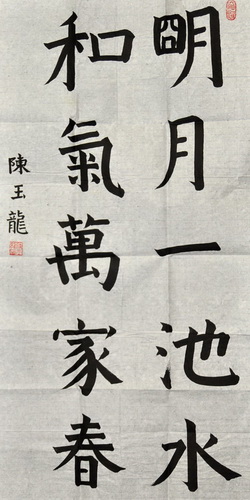 明月一池水
和氣萬家春
陳玉龍